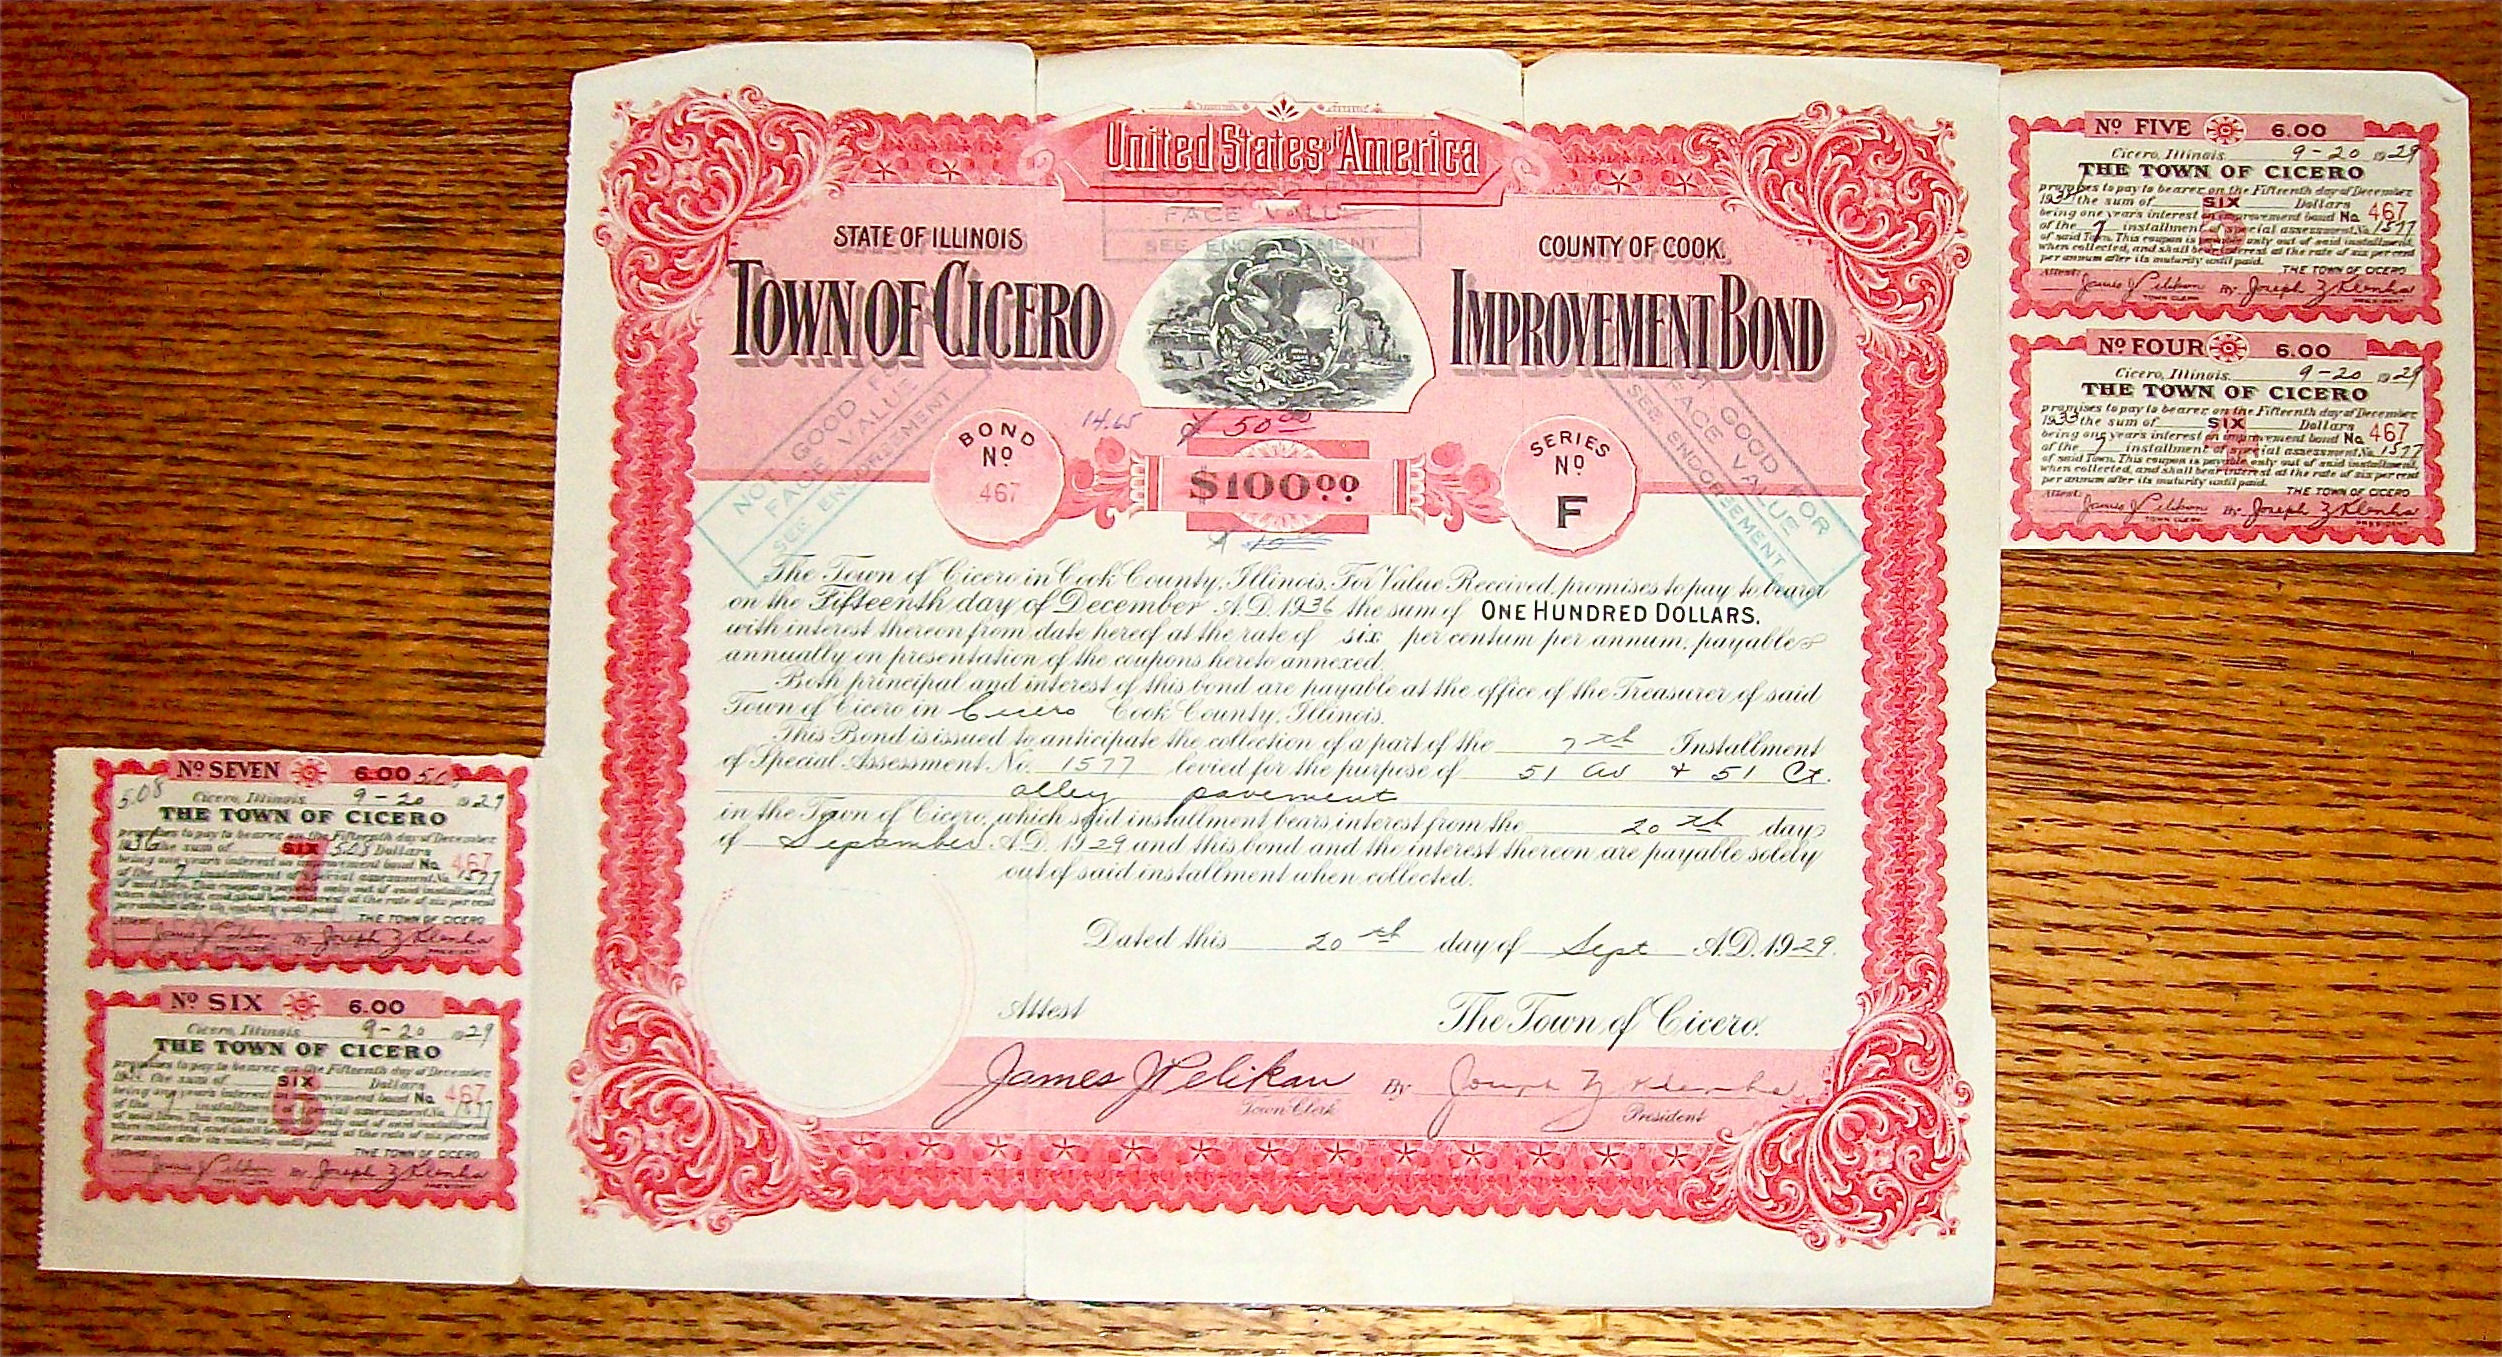 United States of America
NOT GOOD FOR
FACE VALUE
SEE ENDORSEMENT
STATE OF ILLINOIS
COUNTY OF COOK.
TOWN OF CICERO
IMPROVEMENT BOND
NOT GOOD FOR
FACE VALUE
SEE ENDORSEMENT
NOT GOOD FOR
FACE VALUE
SEE ENDORSEMENT
14.65
50 00
BOND
Nº
467
$100 00
SERIES
Nº
F
The Town of Cicero in Cook County, Illinois, For Value Received, promises to pay to bearer
on the Fifteenth day of December A.D. 1936 the sum of ONE HUNDRED DOLLARS,
with interest thereon from date hereof at the rate of six per centum per annum, payable
annually on presentation of the coupons hereto annexed.
Both principal and interest of this bond are payable at the office of the Treasurer of said
Town of Cicero in Cicero Cook County, Illinois.
This Bond is issued to anticipate the collection of a part of the 7th Installment
of Special Assessment No. 1577 levied for the purpose of 51 Av & 51 Ct.
alley pavement
in the Town of Cicero, which said installment bears interest from the 20th day
of September A.D. 1929 and this bond and the interest thereon are payable solely
out of said installment when collected.
Dated this 20th day of Sept A.D. 1929.
Attest
The Town of Cicero.
James J Pelikan By Joseph Z Klenha
Town Clerk
President
Nº FIVE 6.00
Cicero, Illinois. 9-20 1929
THE TOWN OF CICERO
promises to pay to bearer on the Fifteenth day of December
the sum of SIX Dollars
being one year's interest on improvement bond No. 467
of the 7 installment of special assessment No. 1577
of said Town. This coupon is payable only out of said installment,
when collected, and shall bear interest at the rate of six per cent
per annum after its maturity until paid.
THE TOWN OF CICERO
Attest:
James J Pelikan By Joseph Z Klenha
TOWN CLERK PRESIDENT
Nº FOUR 6.00
Cicero, Illinois. 9-20 1929
THE TOWN OF CICERO
promises to pay to bearer on the Fifteenth day of December
1933 the sum of SIX Dollars
being one year's interest on improvement bond No. 467
of the 7 installment of special assessment No. 1577
of said Town. This coupon is payable only out of said installment,
when collected, and shall bear interest at the rate of six per cent
per annum after its maturity until paid.
THE TOWN OF CICERO
Attest:
James J Pelikan By Joseph Z Klenha
TOWN CLERK PRESIDENT
Nº SEVEN 6.00 5.08
5.08
Cicero, Illinois. 9-20 1929
THE TOWN OF CICERO
promises to pay to bearer on the Fifteenth day of December
1936 the sum of SIX 5.08 Dollars
being one year's interest on improvement bond No. 467
of the 7 installment of special assessment No. 1577
of said Town. This coupon is payable only out of said installment,
when collected, and shall bear interest at the rate of six per cent
per annum after its maturity until paid.
THE TOWN OF CICERO
James J Pelikan By Joseph Z Klenha
TOWN CLERK PRESIDENT
Nº SIX 6.00
Cicero, Illinois. 9-20 1929
THE TOWN OF CICERO
promises to pay to bearer on the Fifteenth day of December
the sum of SIX Dollars
being one year's interest on improvement bond No. 467
of the 7 installment of special assessment No. 1577
of said Town. This coupon is payable only out of said installment,
when collected, and shall bear interest at the rate of six per cent
per annum after its maturity until paid.
THE TOWN OF CICERO
James J Pelikan By Joseph Z Klenha
TOWN CLERK PRESIDENT